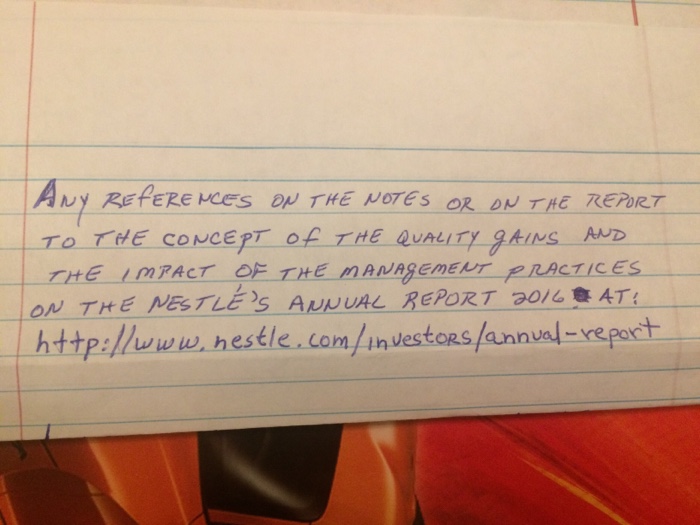 Any REfERENCES ON THE NOTES OR ON THE REPORT
TO THE CONCEPT Of THE QUALITY gAINS AND
THE IMPACT OF THE MANAGEMENT PRACTICES
ON THE NESTLÉ'S ANNUAL REPORT 2016 AT:
http://www.nestle.com/investors/annual-report